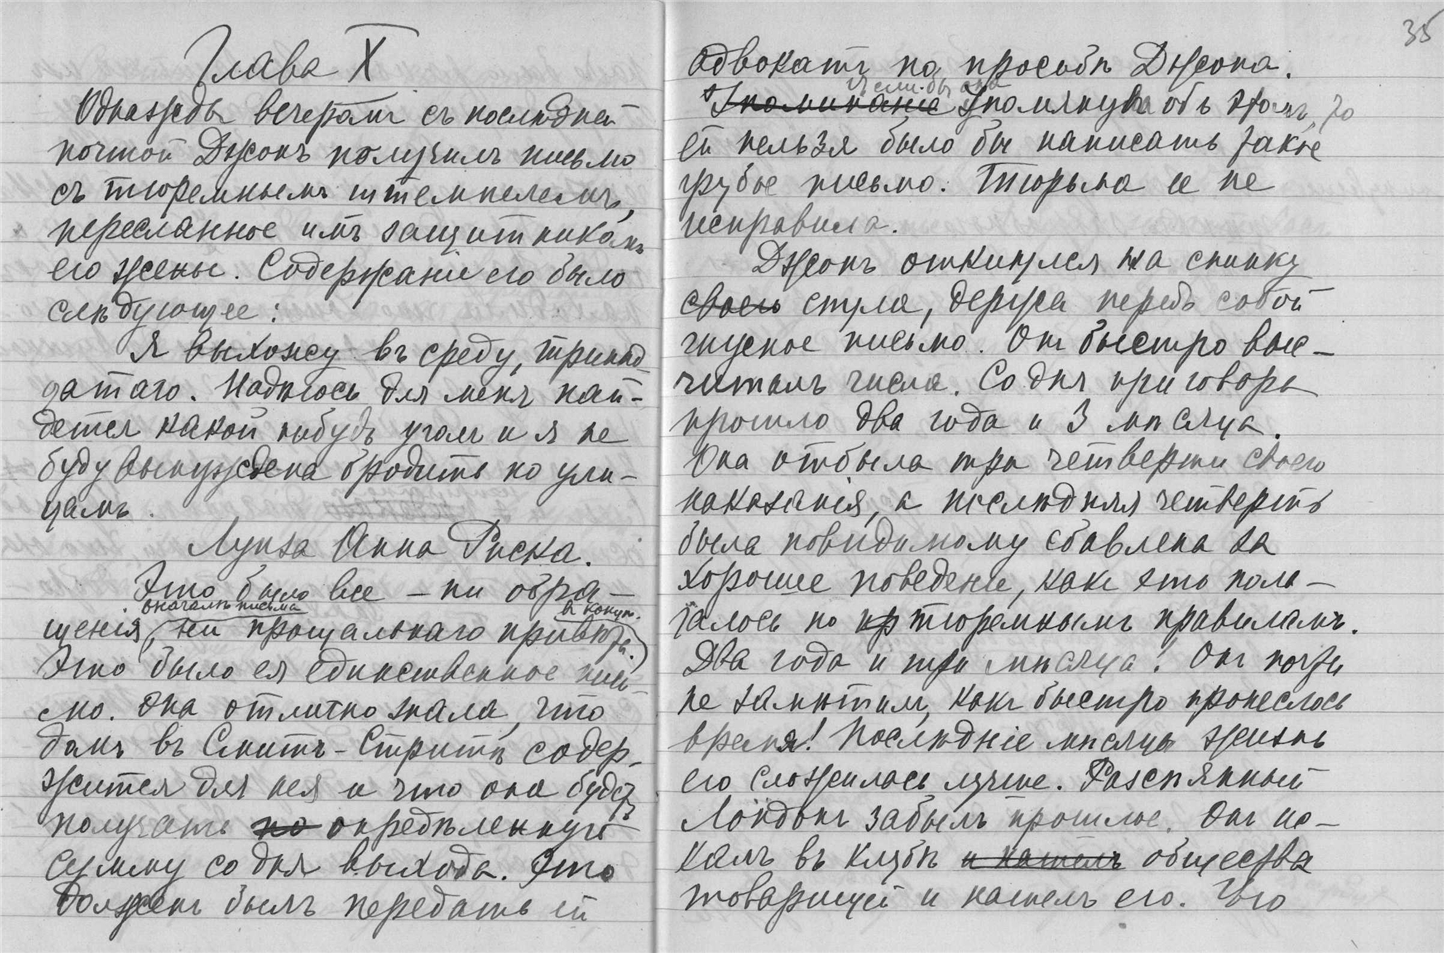 Глава X
Однажды вечеромъ съ послѣдней
почтой Джонъ получилъ письмо
съ тюремнымъ штемпелемъ,
пересланное имъ защитникомъ
его жены. Содержаніе его было
слѣдующее:
Я выхожу въ среду, тринад
цатаго. Надѣюсь для меня най-
дется какой нибудь уголъ и я не
буду вынуждена бродить по ули-
цамъ.
Луиза Анна Риска.
Это было все – ни обра-
вначалѣ письма
въ концѣ.
щенія, ни прощальнаго привѣта.
Это было ея единственное пись-
мо. Она отлично знала, что
домъ въ Смитъ-Стритѣ содер-
жится для нея и что она будетъ
получать по опредѣленную
сумму со дня выхода. Это
долженъ былъ передать ей
35
адвокатъ по просьбѣ Джона.
Если-бы она
Упоминаніе Упомянула объ этомъ, то
ей нельзя было бы написать такое
грубое письмо. Тюрьма ее не
исправила.
Джонъ откинулся на спинку
своего стула, держа передъ собой
гнусное письмо. Онъ быстро выс-
читалъ числа. Со дня приговора
прошло два года и 3 мѣсяца.
Она отбыла три четверти своего
наказанія, а послѣдняя четверть
была повидимому сбавлена за
хорошее поведеніе, какъ это пола-
галось по пр тюремнымъ правиламъ.
Два года и три мѣсяца! Онъ почти
не замѣтилъ, какъ быстро пронеслось
время! Послѣдніе мѣсяцы жизнь
его сложилась лучше. Разсѣянный
Лондонъ забылъ прошлое. Онъ ис-
калъ въ клубѣ и нашелъ общества
товарищей и нашелъ его. Что